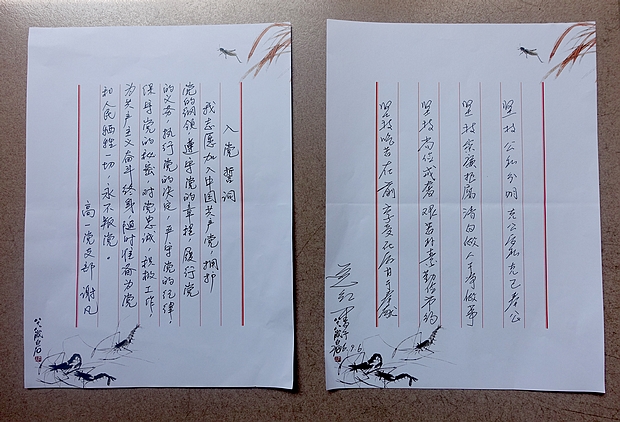 入党誓词
我志愿加入中国共产党，拥护
党的纲领，遵守党的章程，履行党
的义务，执行党的决定，严守党的纪律，
保守党的秘密，对党忠诚，积极工作，
为共产主义奋斗终身，随时准备为党
和人民牺牲一切，永不叛党。
高一党支部 谢凡
坚持公私分明 先公后私 克己奉公
坚持崇廉拒腐 清白做人 干净做事
坚持尚俭戒奢 艰苦朴素 勤俭节约
坚持吃苦在前 享受在后 甘于奉献